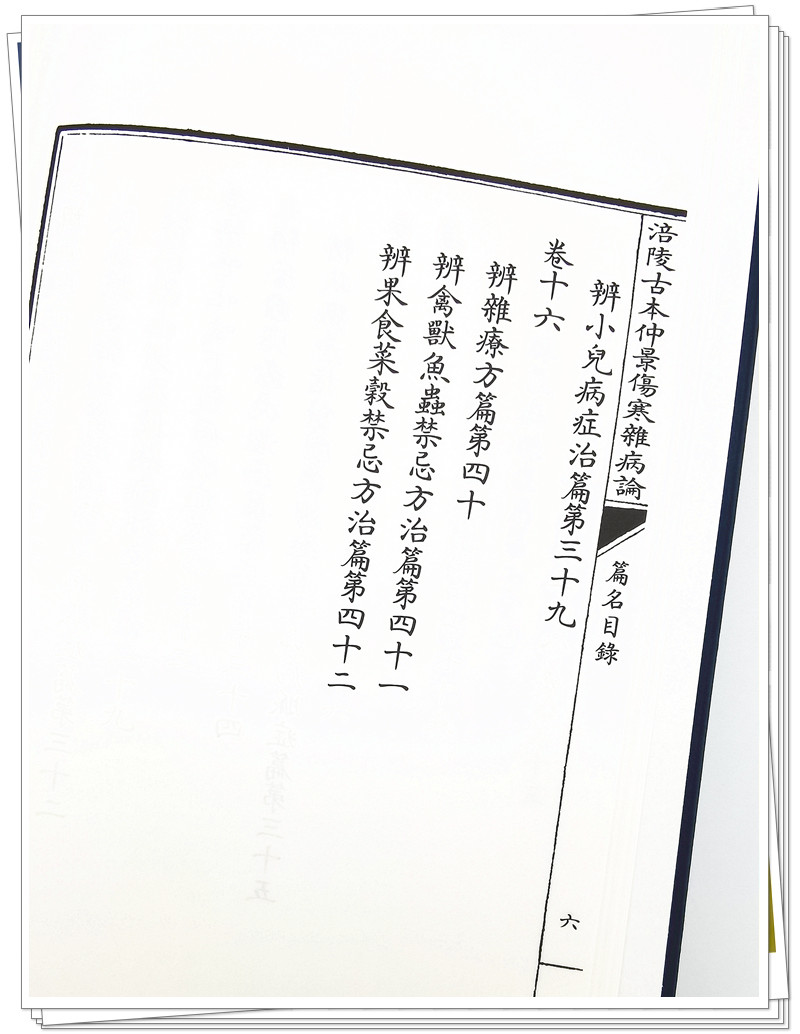 涪陵古本仲景傷寒雜病論
篇名目錄
六
辨小兒病症治篇第三十九
卷十六
辨雜療方篇第四十
辨禽獸魚蟲禁忌方治篇第四十一
辨果食菜穀禁忌方治篇第四十二